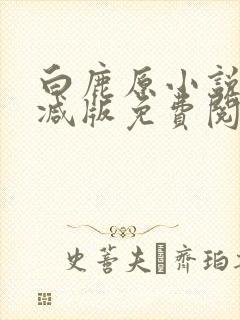 白鹿原小說
減版免費閱
史蒂夫 齊珀